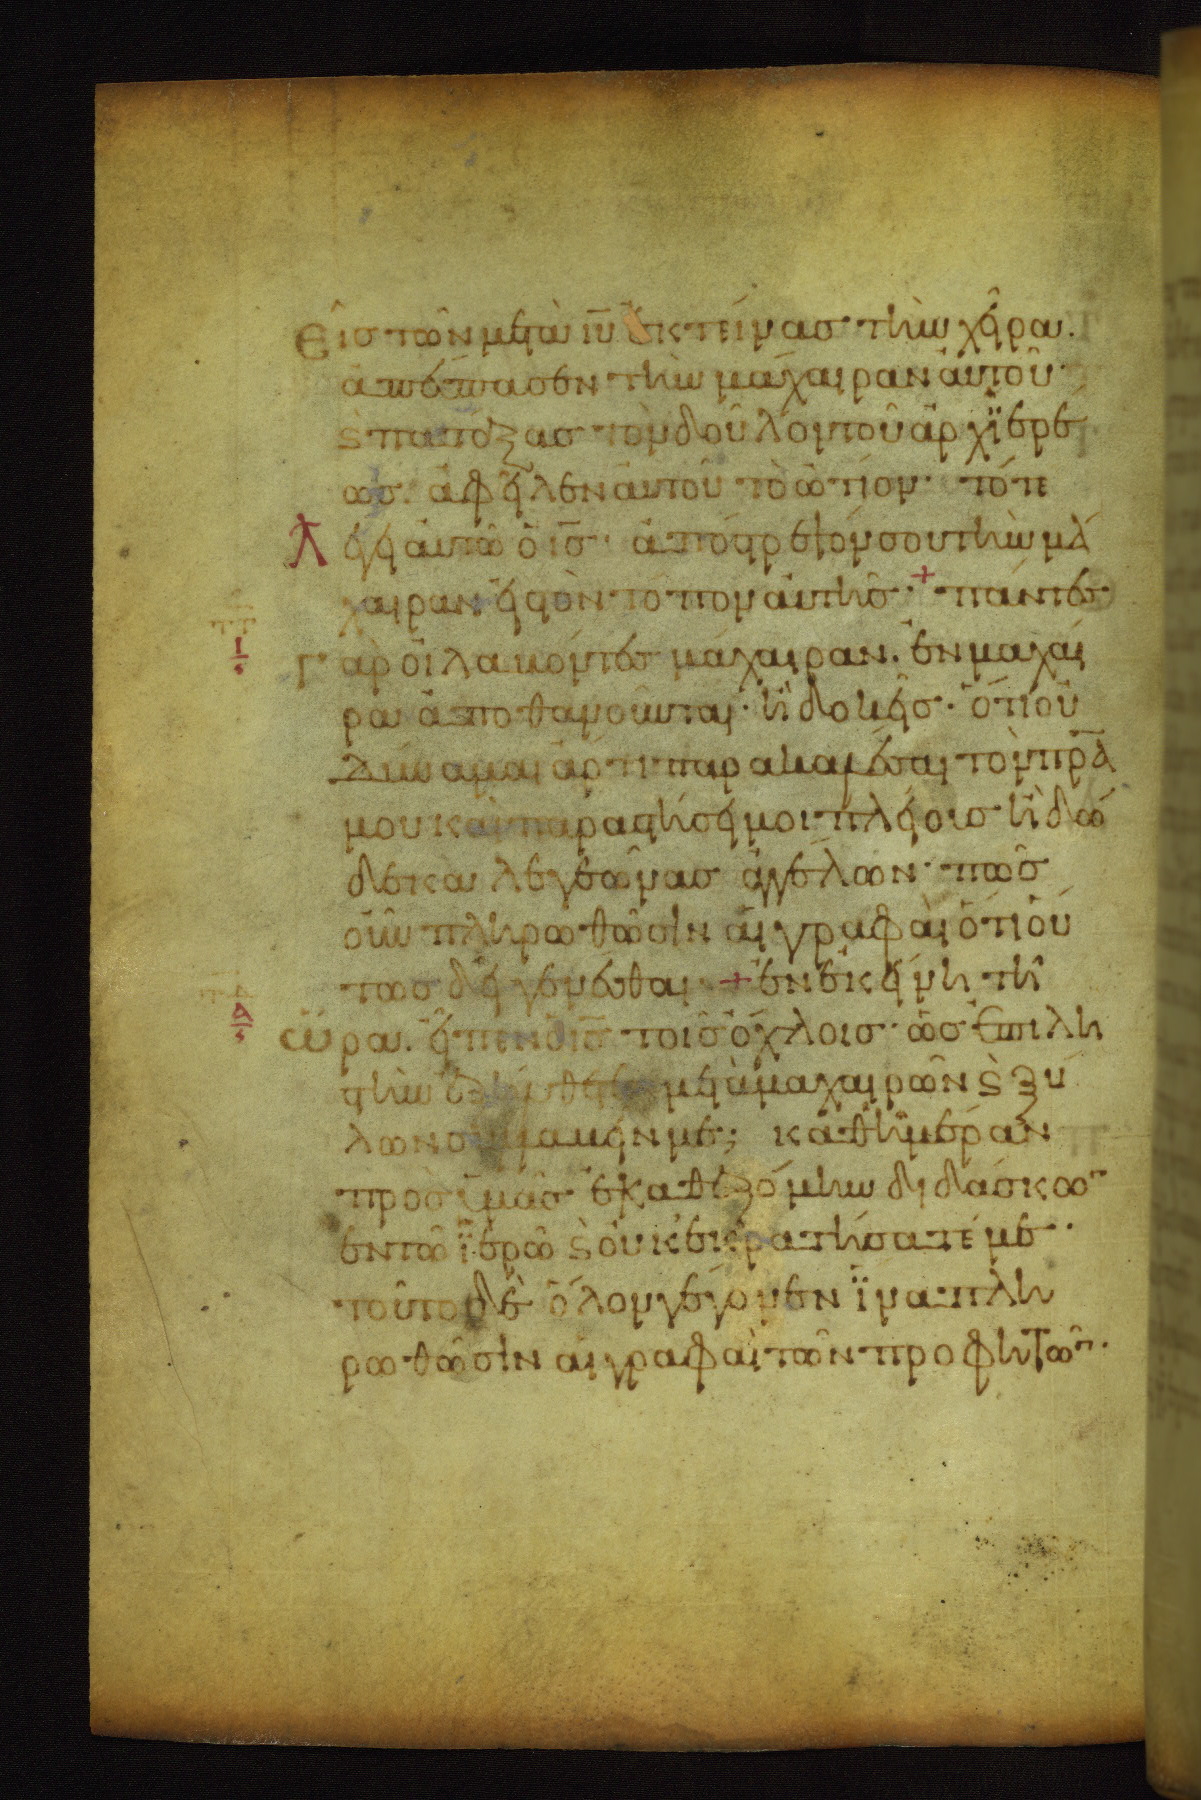 εἷσ τῶν μετὰ ιυ ἐκτείνασ τὴν χεῖρα.
ἀπέσπασεν τὴν μάχαιραν αὐτοῦ·
ϗ πατάξασ τὸν δοῦλον τοῦ ἀρχϊερέ
ωσ. ἀφεῖλεν αὐτοῦ τὸ ὠτίον· τότε
λέγει αὐτῶ ὁ ισ· ἀπόστρεψόν σου τὴν μά
χαιραν εἰσ τὸν τόπον αὐτῆσ· + πάντεσ
ι
γὰρ οἱ λαβόντεσ μάχαιραν. ἐν μαχαί
ρα ἀποθανοῦνται· ἢ δοκεῖσ· ὅτι οὐ
δύναμαι ἄρτι παρακαλέσαι τὸν πρα
μου καὶ παραστήσει μοι πλείουσ ἢ δώ
δεκα λεγεῶνασ ἀγγέλων· πῶσ
οὖν πληρωθῶσιν αἱ γραφαὶ ὅτι οὕ
τωσ δεῖ γενέσθαι + ἐν ἐκείνη τῆ
δ
ὥρα. εἶπεν ὁ ισ τοῖσ ὄχλοισ· ὡσ ἐπὶ λη
στὴν ἐξήλθετε μετὰ μαχαιρῶν ϗ ξύ
λων συλλαβεῖν με; καθημέραν
προσ ϋμᾶσ ἐκαθεζόμην διδάσκων
ἐν τῶ ϊερῶ ϗ οὐκ ἐκρατήσατέ με·
τοῦτο δὲ ὅλον γέγονεν ἵνα πλη
ρωθῶσιν αἱ γραφαὶ τῶν προφητῶν·